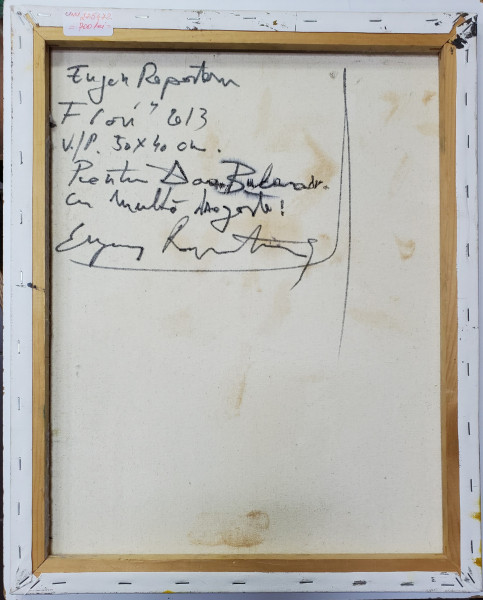 Eugen Raportoru
Flori" 2013
U/P. 50 x 40 cm.
Pentru
cu multă dragoste!
Eugen Raportoru